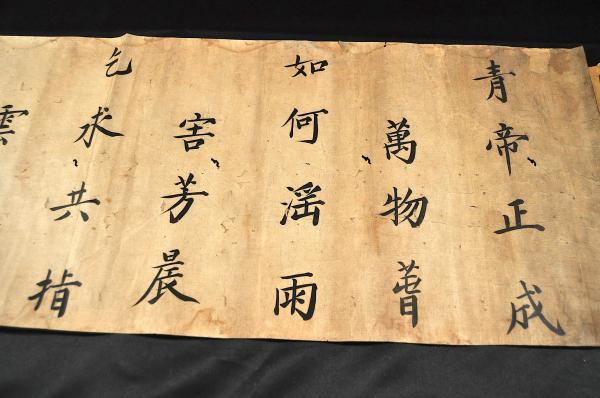 青帝正成
萬物萅
如何滛雨
害芳晨
乞求共指
雲